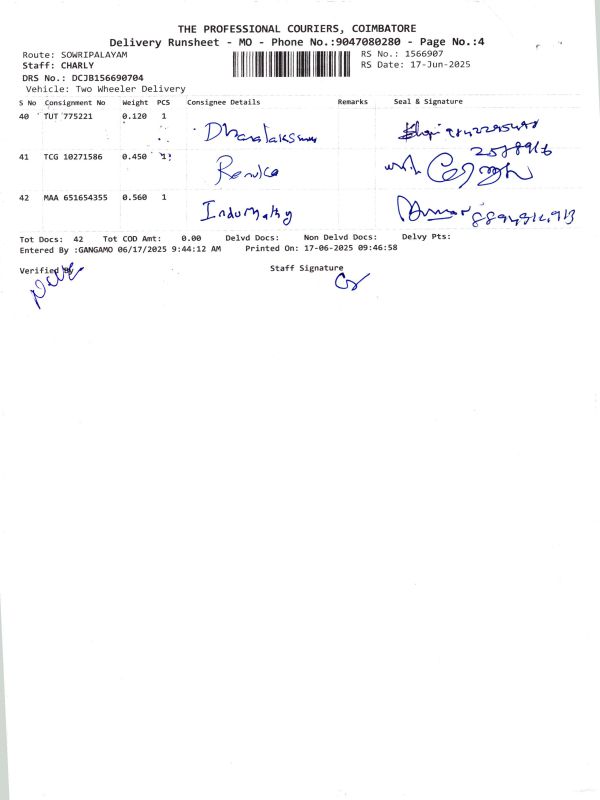 THE PROFESSIONAL COURIERS, COIMBATORE
Delivery Runsheet - MO - Phone No.:9047080280 - Page No.:4
Route: SOWRIPALAYAM RS No.: 1566907
Staff: CHARLY RS Date: 17-Jun-2025
DRS No.: DCJB156690704
Vehicle: Two Wheeler Delivery
S No Consignment No Weight PCS Consignee Details Remarks Seal & Signature
40 TUT 775221 0.120 1
41 TCG 10271586 0.450 1 Renuka
42 MAA 651654355 0.560 1 Indumathy
Tot Docs: 42 Tot COD Amt: 0.00 Delvd Docs: Non Delvd Docs: Delvy Pts:
Entered By :GANGAMO 06/17/2025 9:44:12 AM Printed On: 17-06-2025 09:46:58
Verified By Staff Signature